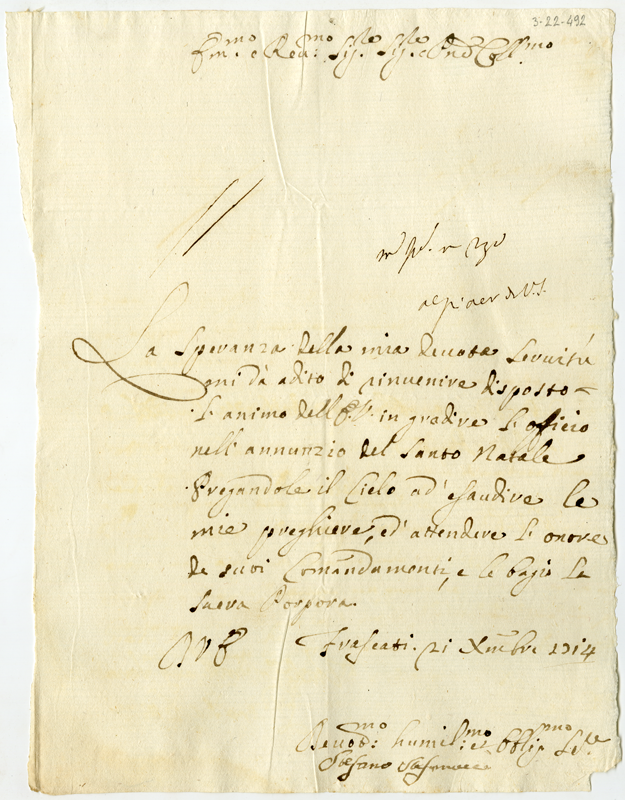 3-22-492
Em.mo e Reu:mo Sig.re Sig.re e Pne Coll.mo
La Speranza della mia deuota Seruitú
mi dà adito di rinuenire disposto
l'animo dell'E.V. in gradire l'officio
nell'annunzio del Santo Natale
Pregandole il Cielo ad'esaudire le
mie preghiere, ed'attendere l'onore
de suoi Comandamenti, e le bagio la
Sacra Porpora.
Frascati. 21 Xmbre 1714
Deuot:mo humil:mo et Obblig.mo Se.re
Stefano